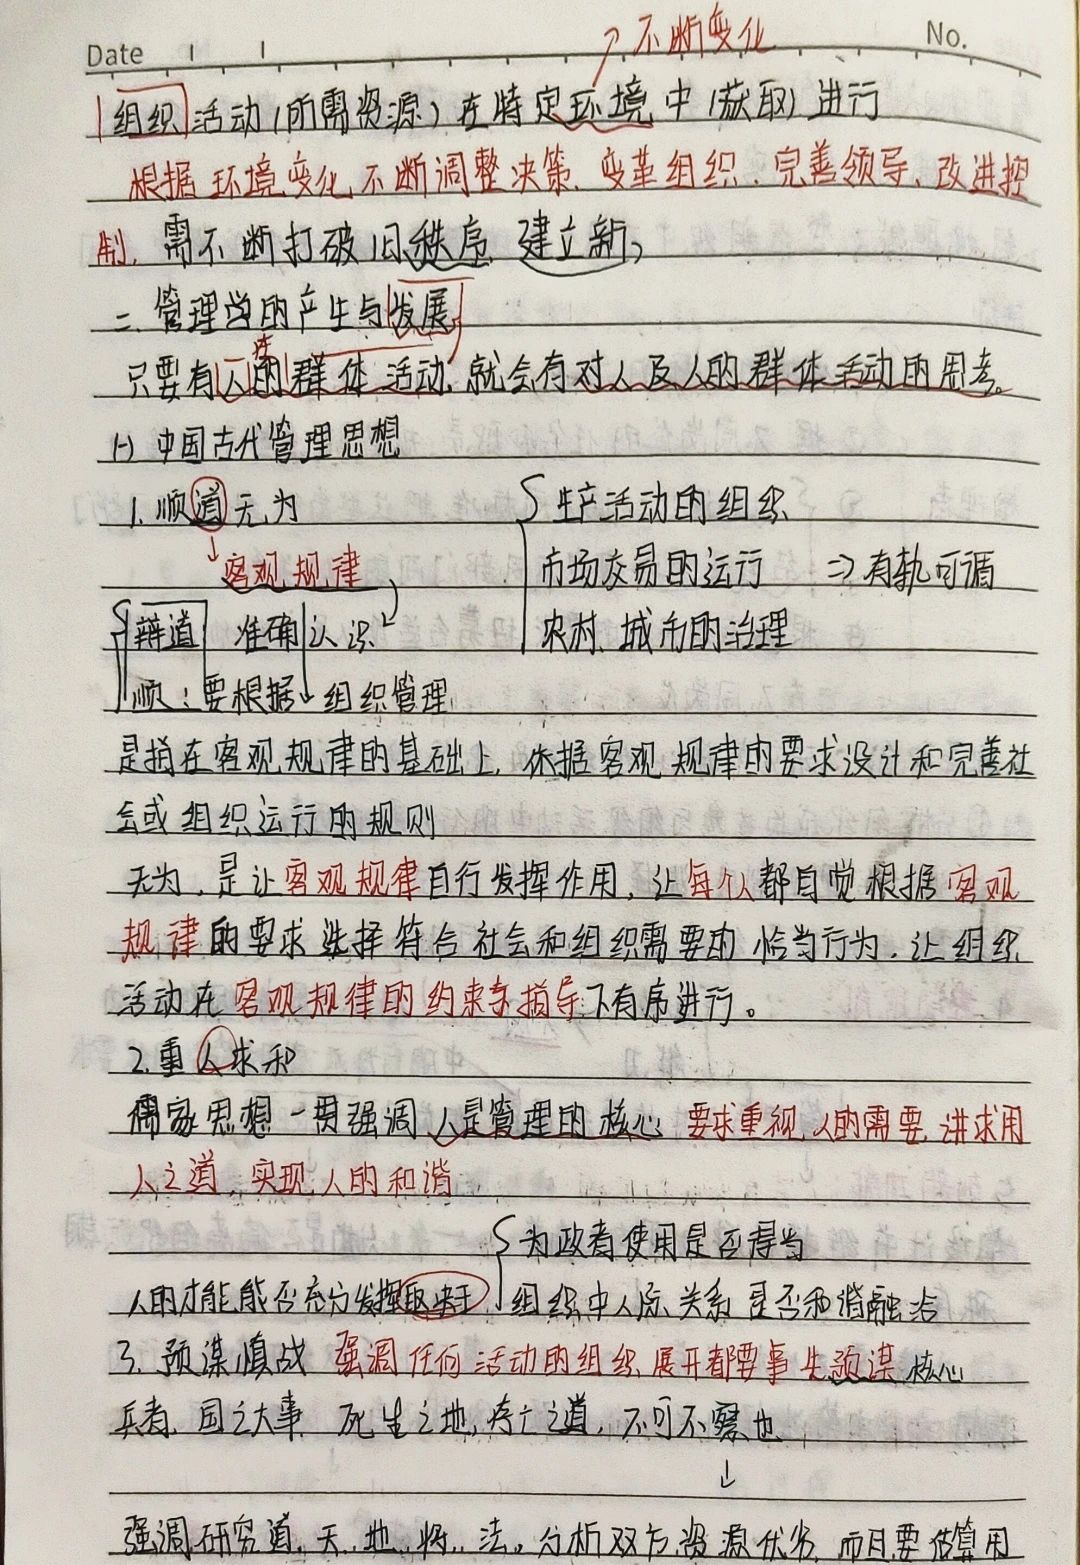 Date
No.
不断变化
组织活动(所需资源)在特定环境中(获取)进行
根据环境变化不断调整决策、变革组织、完善领导、改进控
制,需不断打破旧秩序 建立新,
二、管理学的产生与发展
只要有人的群体活动,就会有对人及人的群体活动的思考。
(-) 中国古代管理思想
1. 顺道无为
生产活动的组织
客观规律
市场交易的运行 => 有轨可循
辩道 准确认识
农村、城市的治理
顺:要根据 组织管理
是指在客观规律的基础上,依据客观规律的要求设计和完善社
会或组织运行的规则
无为,是让客观规律自行发挥作用,让每个人都自觉根据客观
规律的要求选择符合社会和组织需要的恰当行为,让组织
活动在客观规律的约束与指导下有序进行。
2.重人求和
儒家思想一贯强调人是管理的核心 要求重视人的需要,讲求用
人之道,实现人的和谐
为政者使用是否得当
人的才能能否充分发挥取决于
组织中人际关系是否和谐融洽
3. 预谋慎战 强调任何活动的组织展开都要事先预谋 核心
兵者,国之大事 死生之地,存亡之道,不可不察也
强调研究道、天、地、将、法。分析双方资源优劣,而且要估算用